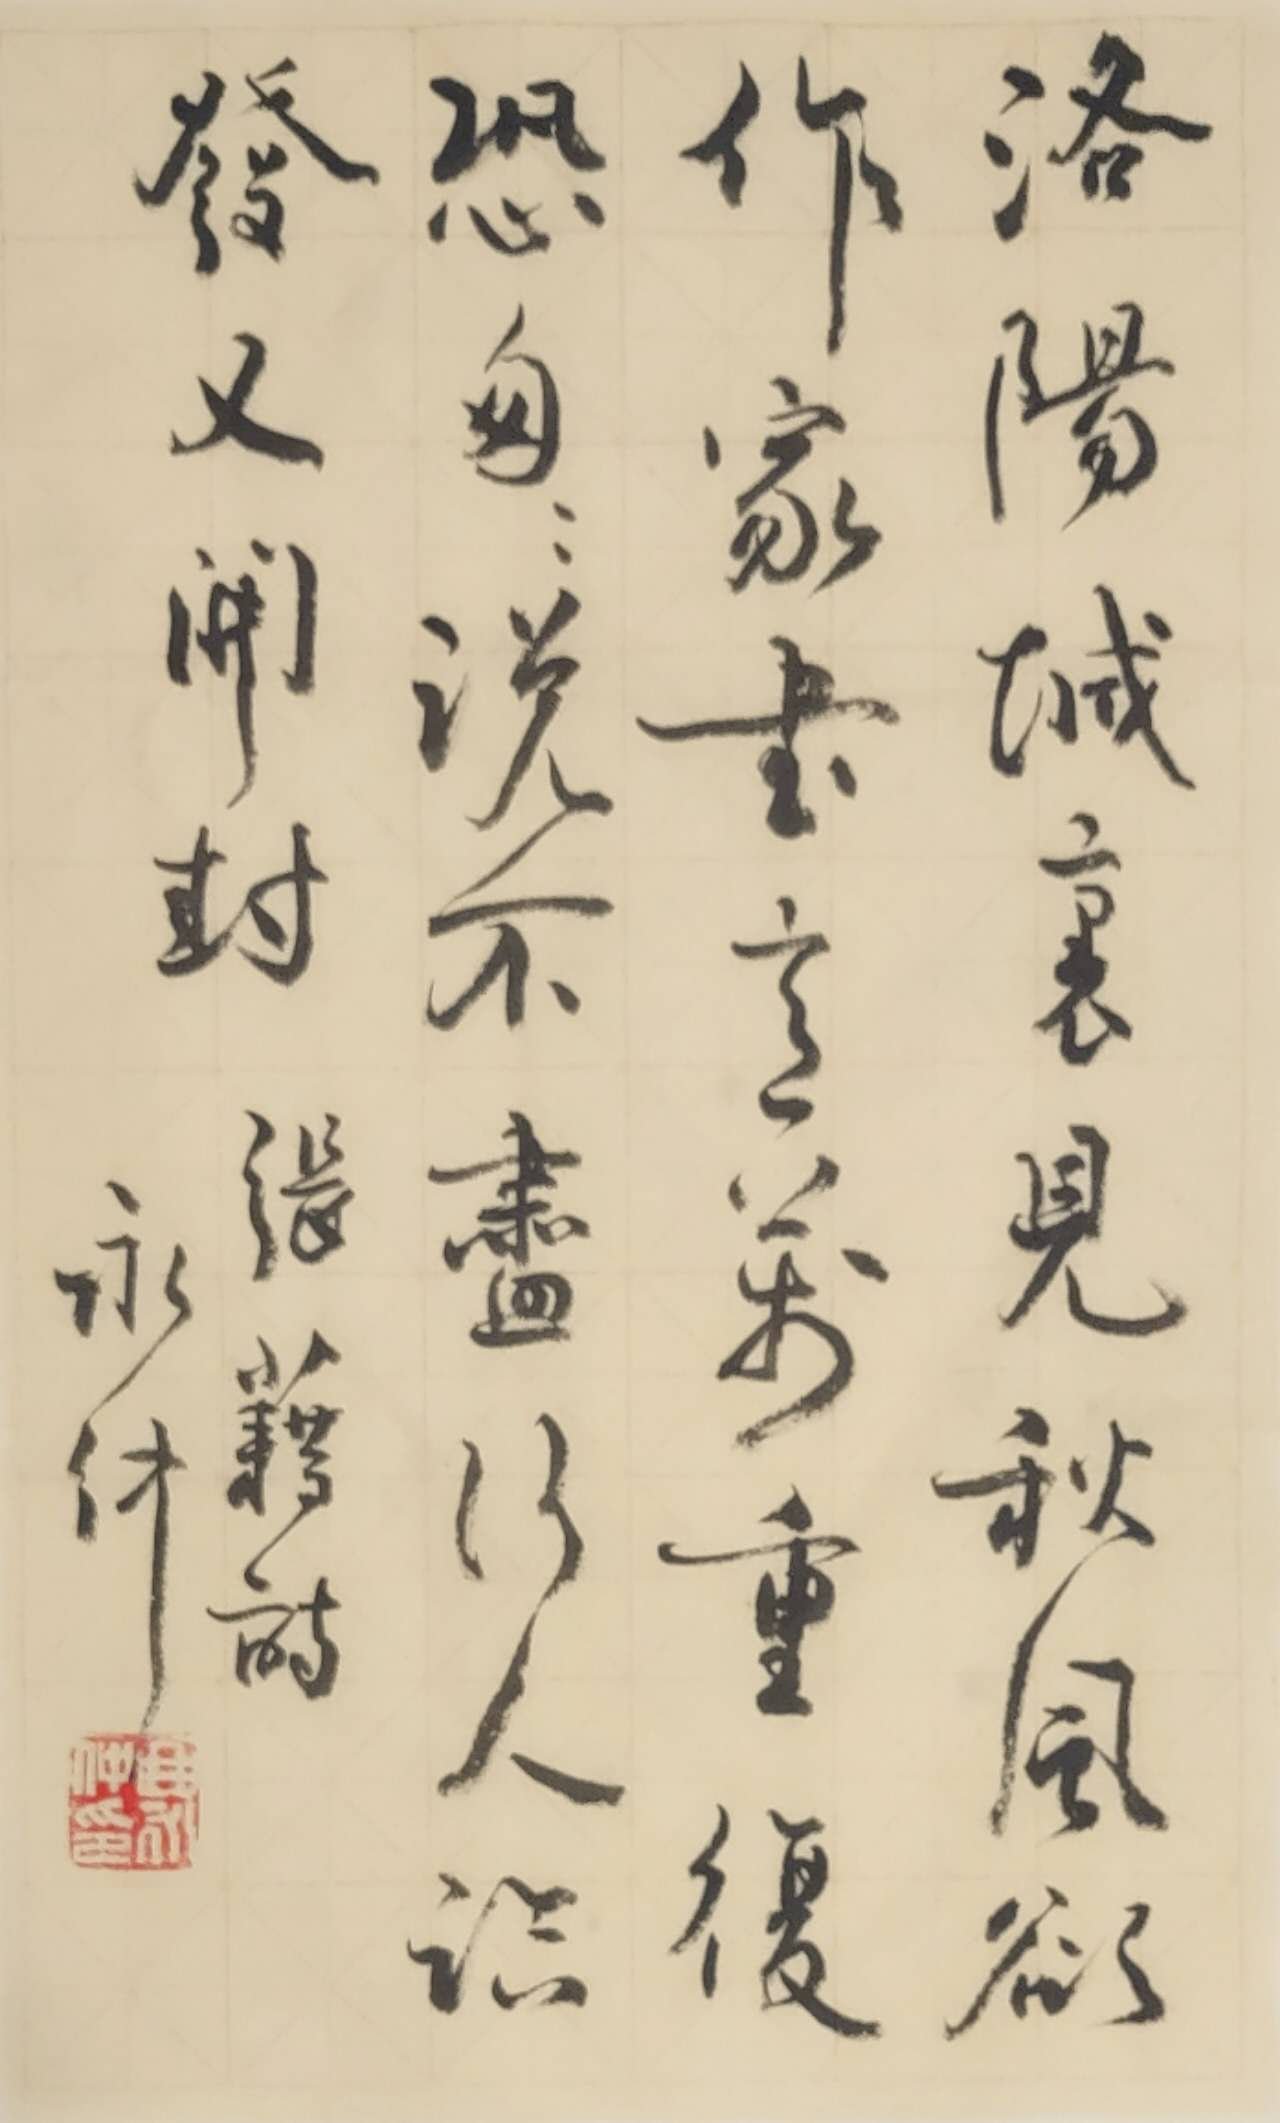 洛陽城裏見秋風欲
作家書意萬重復
恐匆〻說不盡行人臨
發又開封
張籍詩
永仲
永仲印